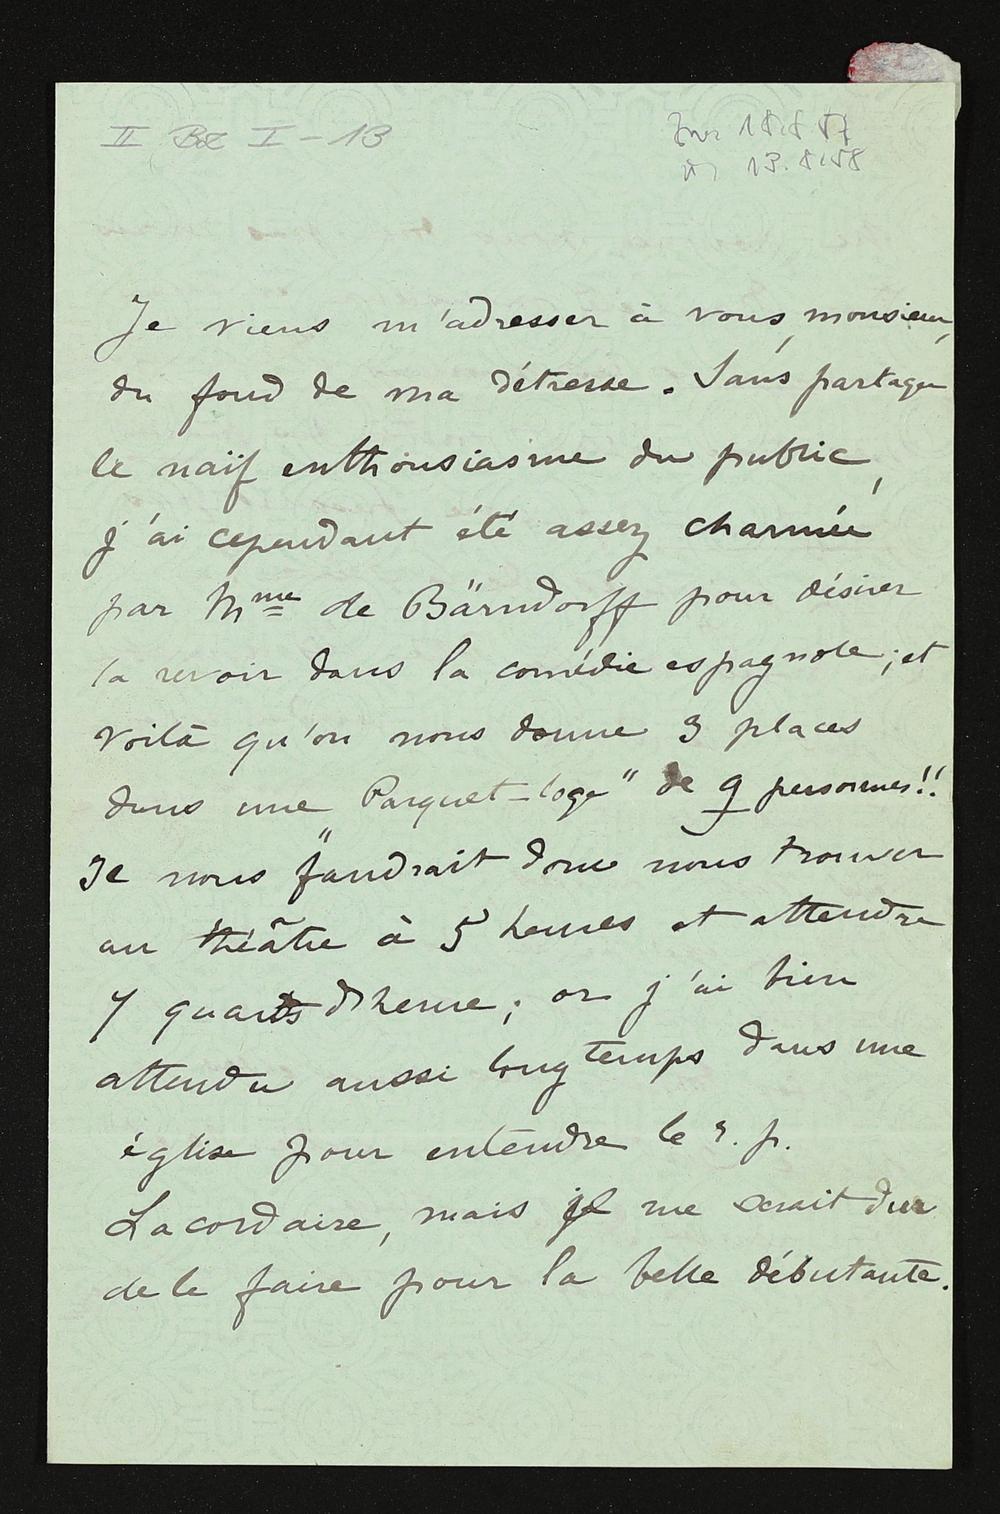 II Bz I - 13
Je viens m'adresser à vous, monsieur,
du fond de ma détresse. Sans partager
le naïf enthousiasme du public,
j'ai cependant été assez charmée
par Mme de Bärndorff pour désirer
la revoir dans la comédie espagnole; et
voilà qu'on nous donne 3 places
dans une „Parquet-loge" de 9 personnes!!
Il nous faudrait donc nous trouver
au théâtre à 5 heures et attendre
7 quarts d'heure; or j'ai bien
attendu aussi longtemps dans une
église pour entendre le r. p.
Lacordaire, mais il me serait dur
de le faire pour la belle débutante.